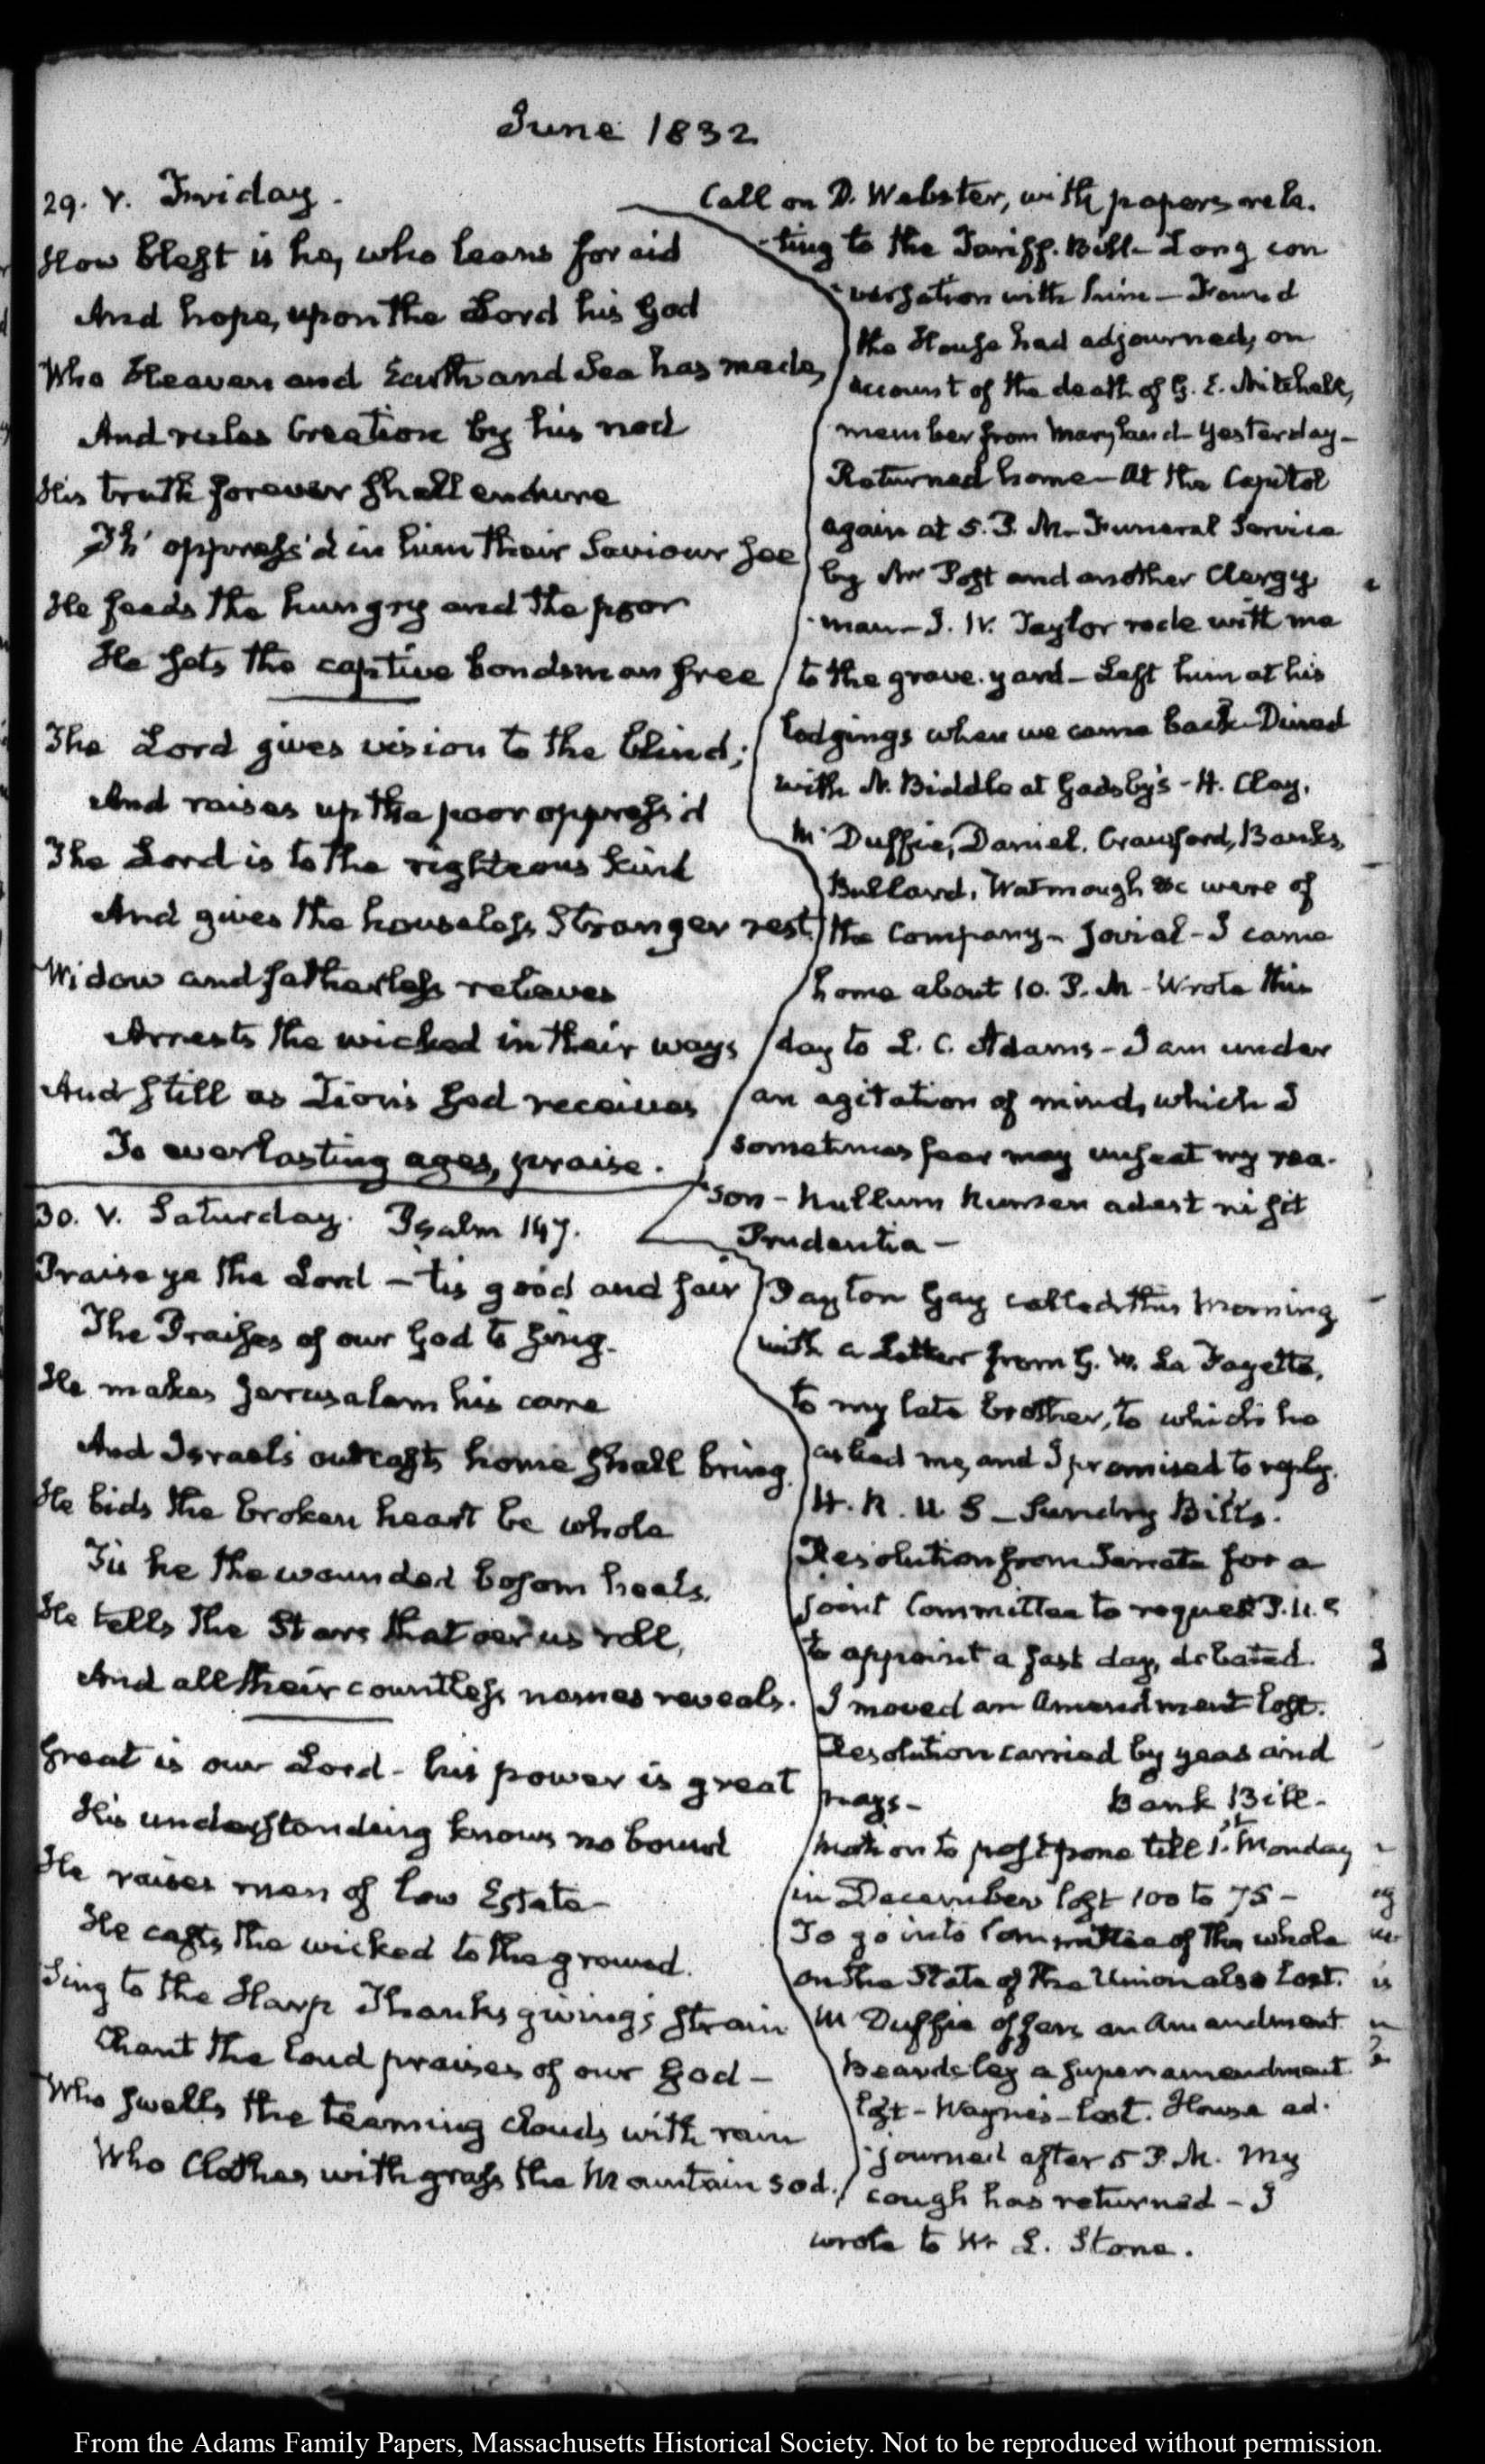 June 1832
29. V. Friday.
How blest is he, who leans for aid
And hope, upon the Lord his God
Who Heaven and Earth and Sea has made,
And rules Creation by his nod
His truth forever shall endure
Th' oppress'd in him their Saviour see
He feeds the hungry and the poor
He sets the captive bondsman free
The Lord gives vision to the blind;
And raises up the poor oppress'd
The Lord is to the righteous kind
And gives the houseless Stranger rest.
Widow and fatherless relieves
Arrests the wicked in their ways
And still as Zion's God receives
To everlasting ages, praise.
Call on D. Webster, with papers rela-
-ting to the Tariff. Bill- Long con
-versation with him - Found
the House had adjourned, on
account of the death of G. E. Mitchell,
member from Maryland yesterday-
Returned home- At the Capitol
again at 5. P. M- Funeral Service
by Mr Post and another Clergy
-man- J. W. Taylor rode with me
to the grave-yard- Left him at his
lodgings when we came back- Dined
with N. Biddle at Gadsby's- H. Clay.
Mc Duffie, Daniel, Crawford, Banks,
Bullard, Watmough &c were of
the Company- Jovial- I came
home about 10. P. M- Wrote this
day to L. C. Adams- I am under
an agitation of mind, which I
sometimes fear may unseat my rea-
-son- Nullum Numen adest ni sit
Prudentia-
30. V. Saturday. Psalm 147.
Praise ye the Lord - 'tis good and fair
The Praises of our God to sing.
He makes Jerusalem his care
And Israel's outcasts home shall bring.
He bids the broken heart be whole
Tis he the wounded bosom heals.
He tells the Stars that o'er us roll,
And all their countless names reveals.
Great is our Lord- his power is great
His understanding knows no bound
He raises men of low Estate-
He casts the wicked to the ground.
Sing to the Harp Thanksgiving's strain
Chant the loud praises of our God-
Who swells the teeming clouds with rain
Who Clothes with grass the Mountain sod.
Payton Gay called this Morning
with a Letter from G. W. La Fayette,
to my late brother, to which he
asked me, and I promised to reply.
H. R. U S- Sundry Bills.
Resolution from Senate for a
joint Committee to request P. U. S
to appoint a fast day, debated.
I moved an Amendment lost.
Resolution carried by yeas and
nays- Bank Bill-
Motion to postpone till 1st Monday
in December lost 100 to 75-
To go into Committee of the whole
on the State of the Union also lost.
Mc Duffie offers an Amendment
Beardsley a super amendment
lost- Wayne's- lost. House ad-
-journed after 5 P. M. My
cough has returned- I
wrote to W L. Stone.
From the Adams Family Papers, Massachusetts Historical Society. Not to be reproduced without permission.